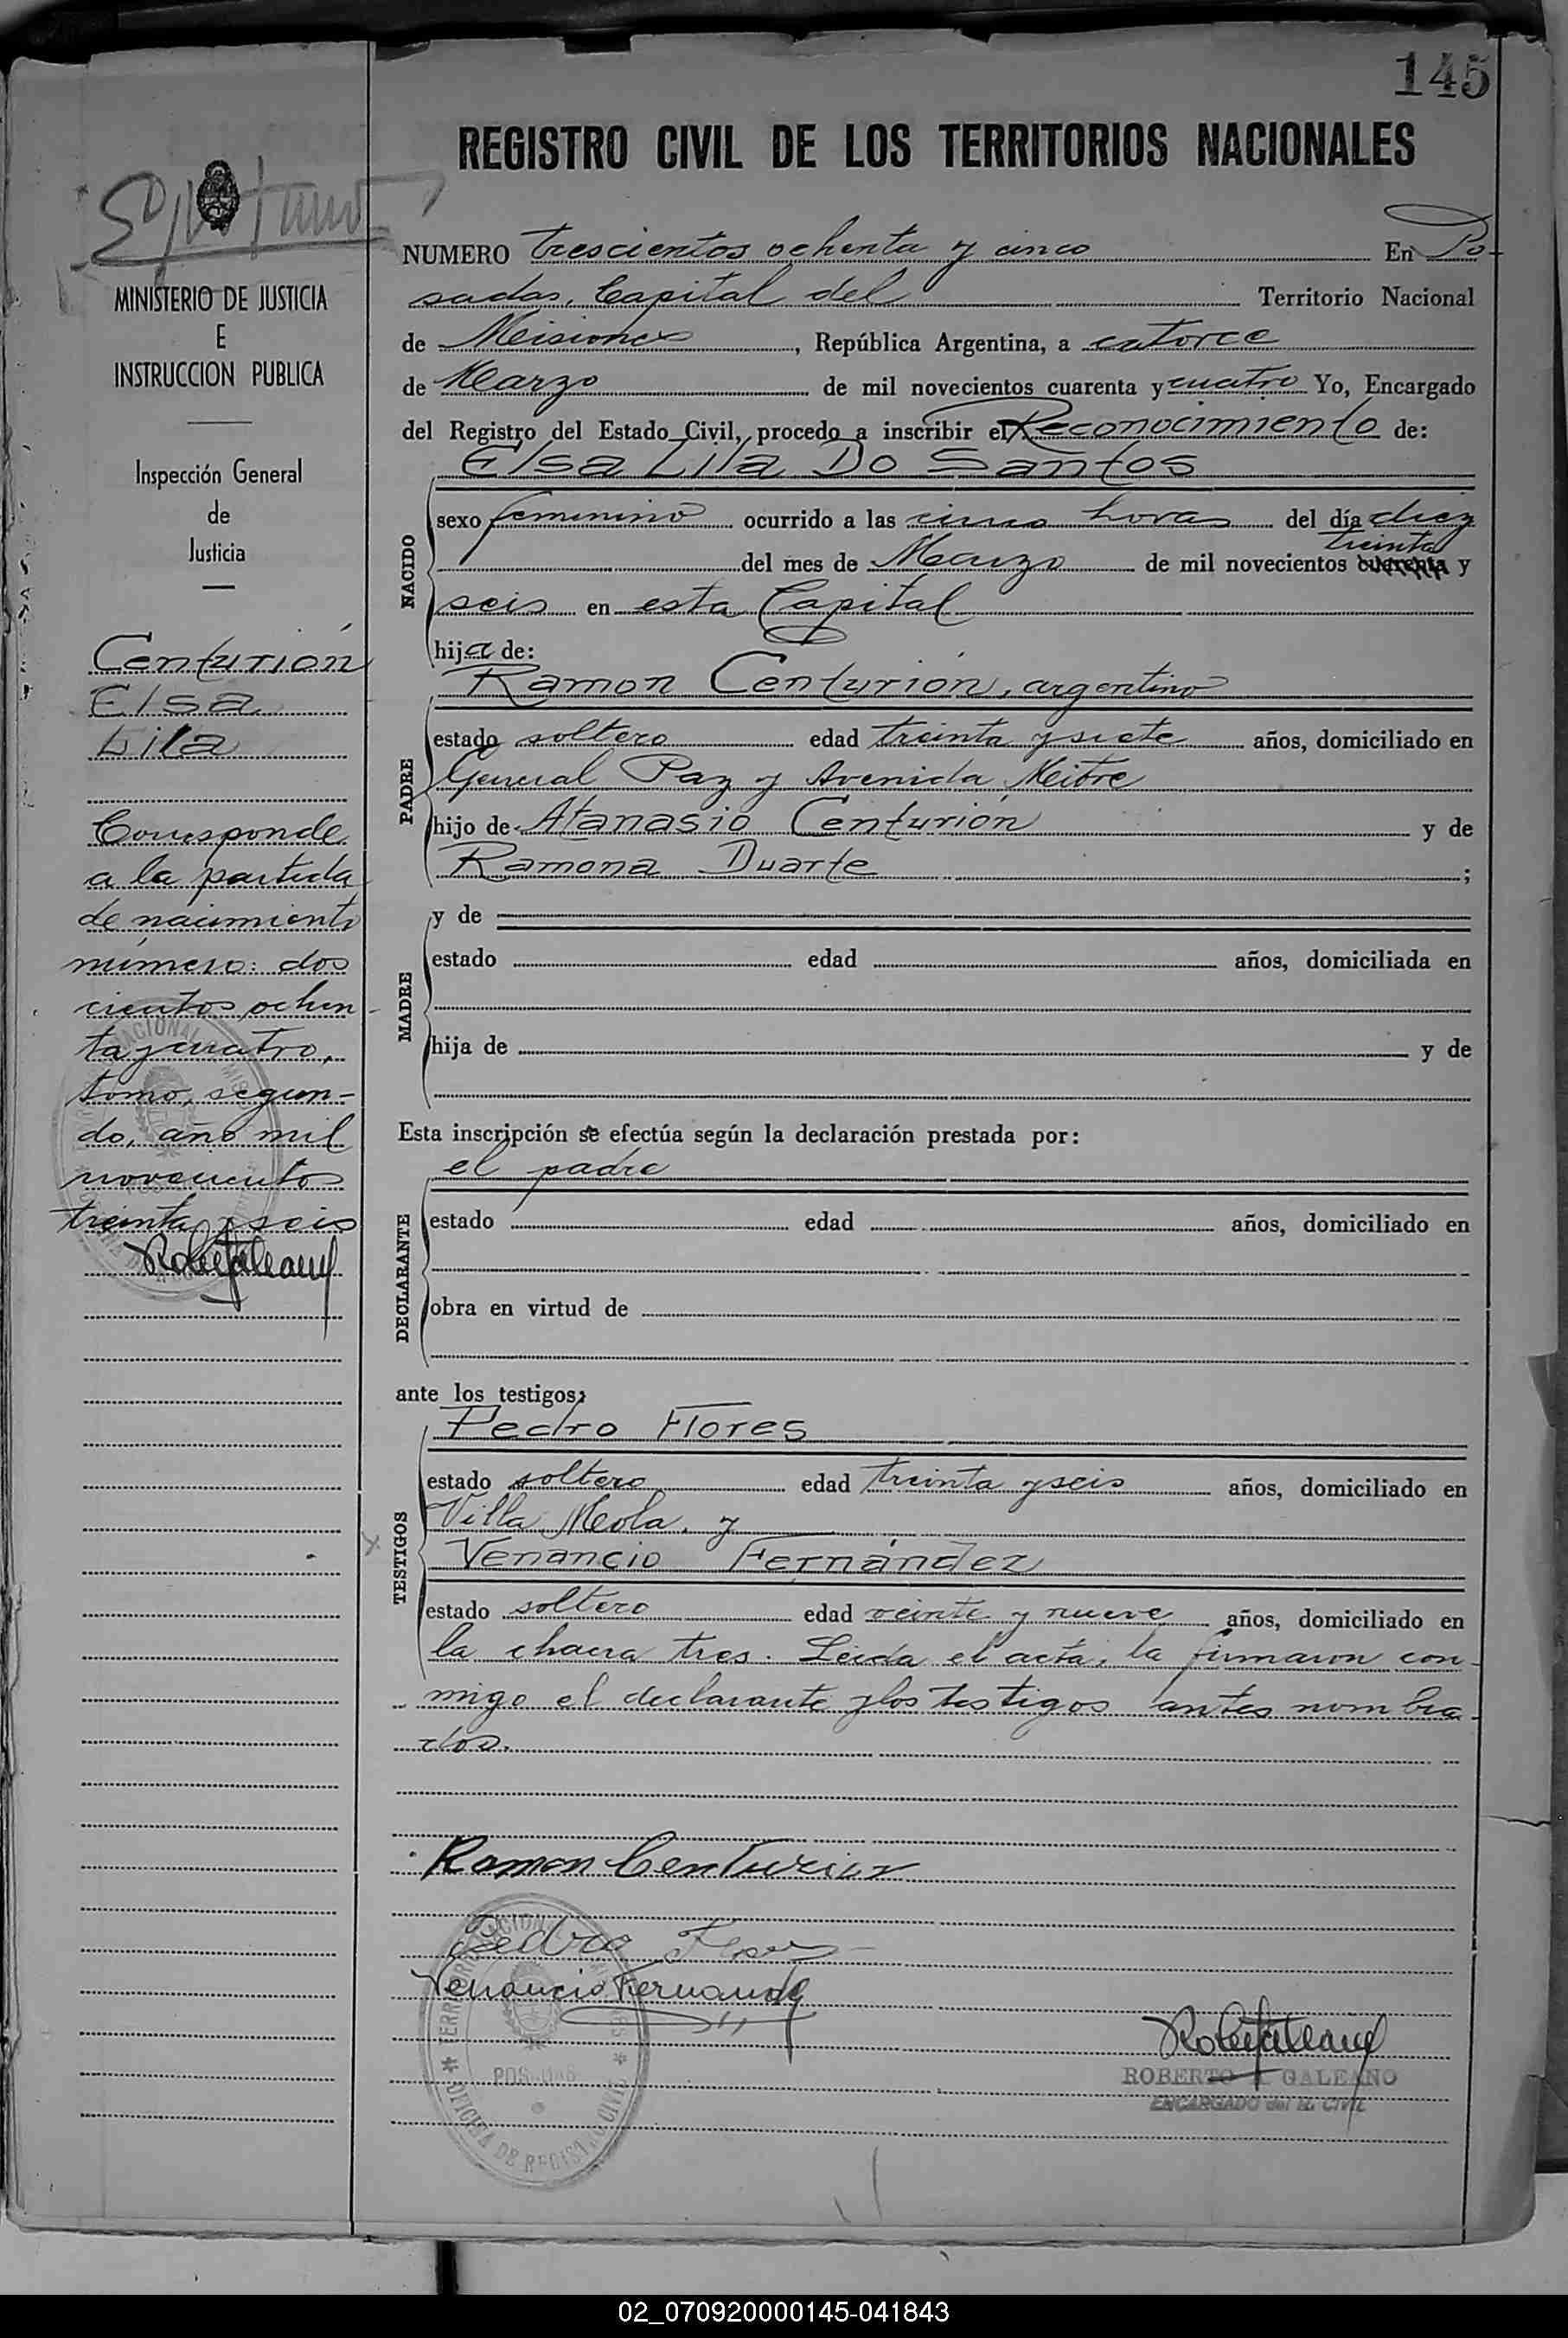 145
REGISTRO CIVIL DE LOS TERRITORIOS NACIONALES
MINISTERIO DE JUSTICIA
E
INSTRUCCION PUBLICA
Inspección General
de
Justicia
Centurión
Elsa
Lila
Corresponde
a la partida
de nacimiento
número: dos
cientos ochen-
ta y cuatro,
tomo, segun-
do, año mil
novecientos
treinta y seis
NUMERO trescientos ochenta y cinco En Po-
sadas, Capital del Territorio Nacional
de Misiones, República Argentina, a catorce
de Marzo de mil novecientos cuarenta y cuatro Yo, Encargado
del Registro del Estado Civil, procedo a inscribir el Reconocimiento de:
Elsa Lila Do Santos
NACIDO
sexo femenino ocurrido a las cinco horas del día diez
treinta
del mes de Marzo de mil novecientos cuarenta y
seis en esta Capital
hija de:
Ramon Centurión, argentino
PADRE
estado soltero edad treinta y siete años, domiciliado en
General Paz y Avenida Mitre
hijo de Atanasio Centurión y de
Ramona Duarte ;
MADRE
y de
estado edad años, domiciliada en
hija de y de
Esta inscripción se efectúa según la declaración prestada por:
el padre
DECLARANTE
estado edad años, domiciliado en
obra en virtud de
ante los testigos:
Pedro Flores
TESTIGOS
estado soltero edad treinta y seis años, domiciliado en
Villa Mola, y
Venancio Fernández
estado soltero edad veinte y nueve años, domiciliado en
la chacra tres. Leida el acta, la firmaron con-
migo el declarante y los testigos antes nombra-
dos.
Ramon Centurion
Pedro Flores
Venancio Fernandez
ROBERTO GALEANO
ENCARGADO del R. CIVIL
POSADAS
OFICINA DE REGISTRO CIVIL
02_070920000145-041843